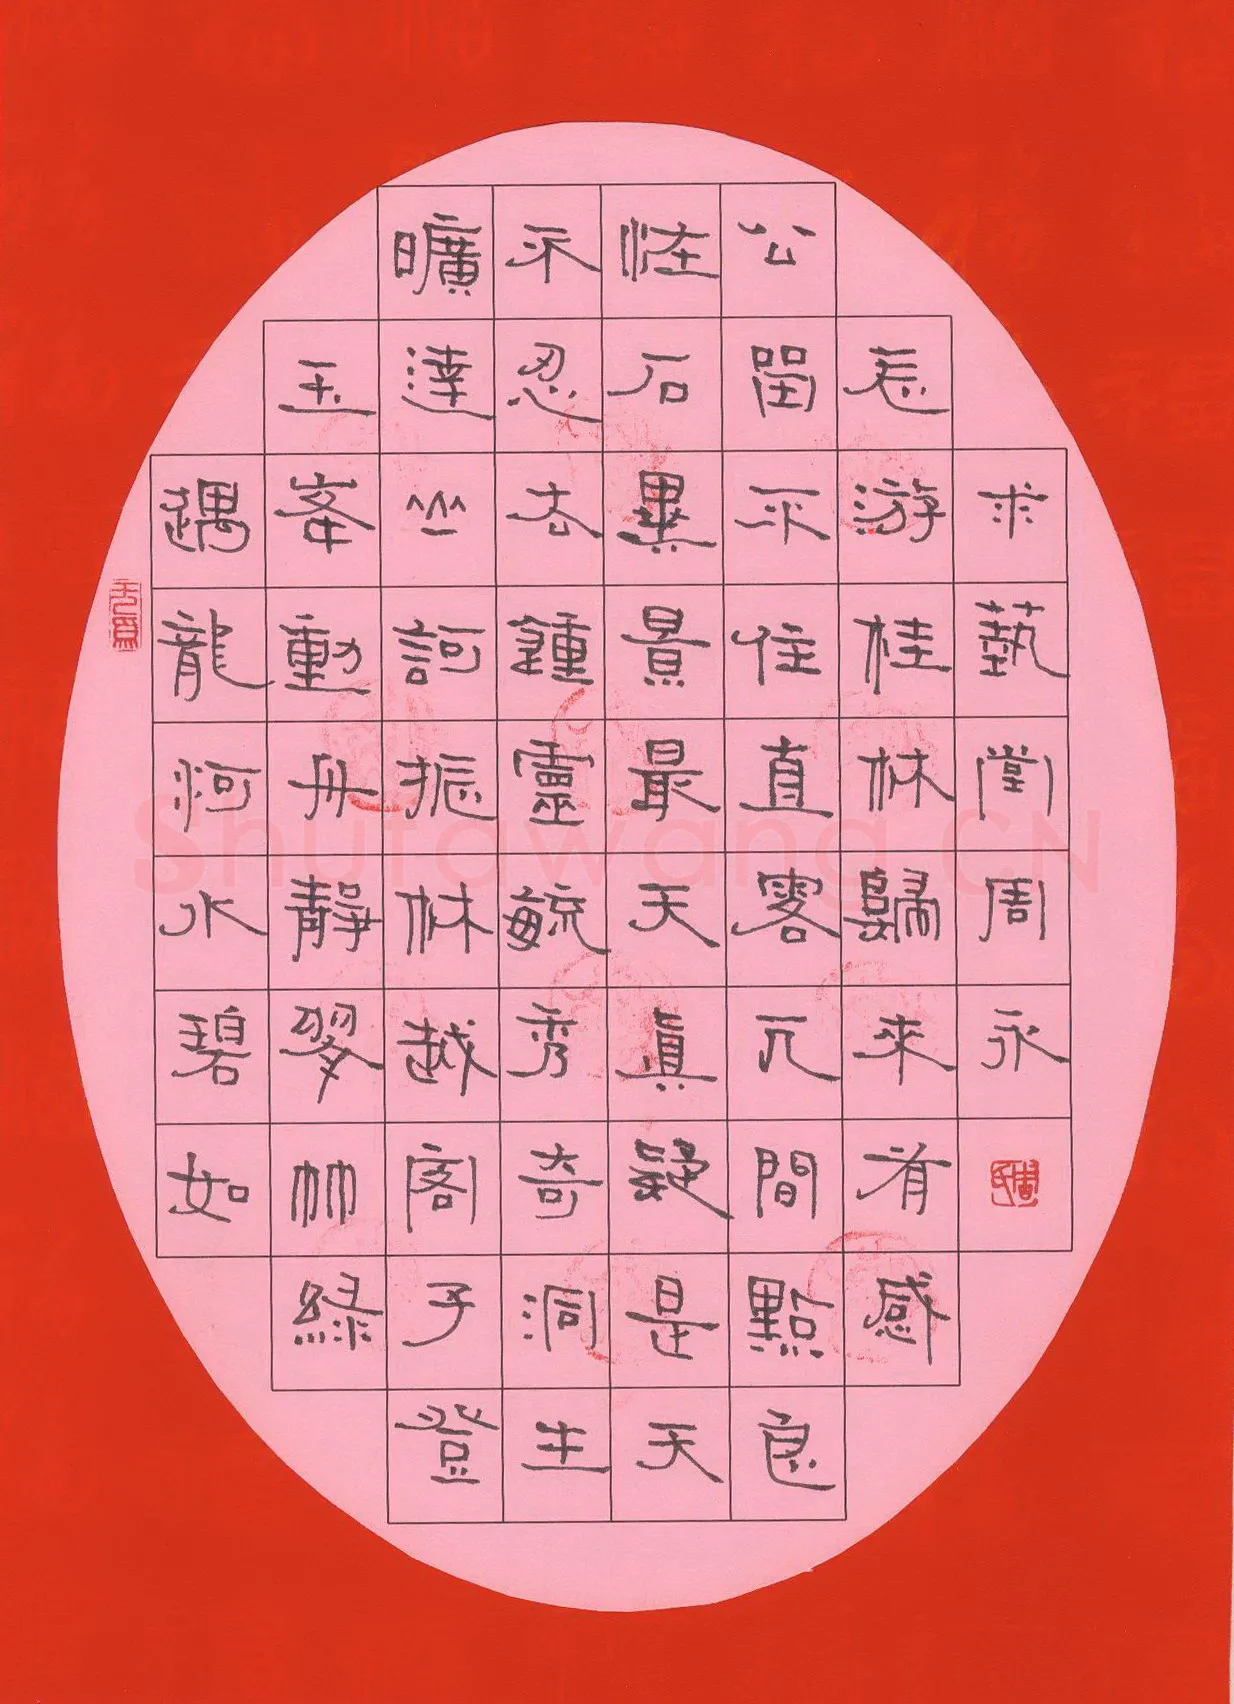 遇龍河水碧如
玉峯動舟靜翠竹綠
曠達竺訶振林越閣子登
不忍去鍾靈毓秀奇洞生
怪石異景最天真疑是天
公留不住直落凡間點良
游桂林歸來有感
求藝堂周永
Shufawang.CN